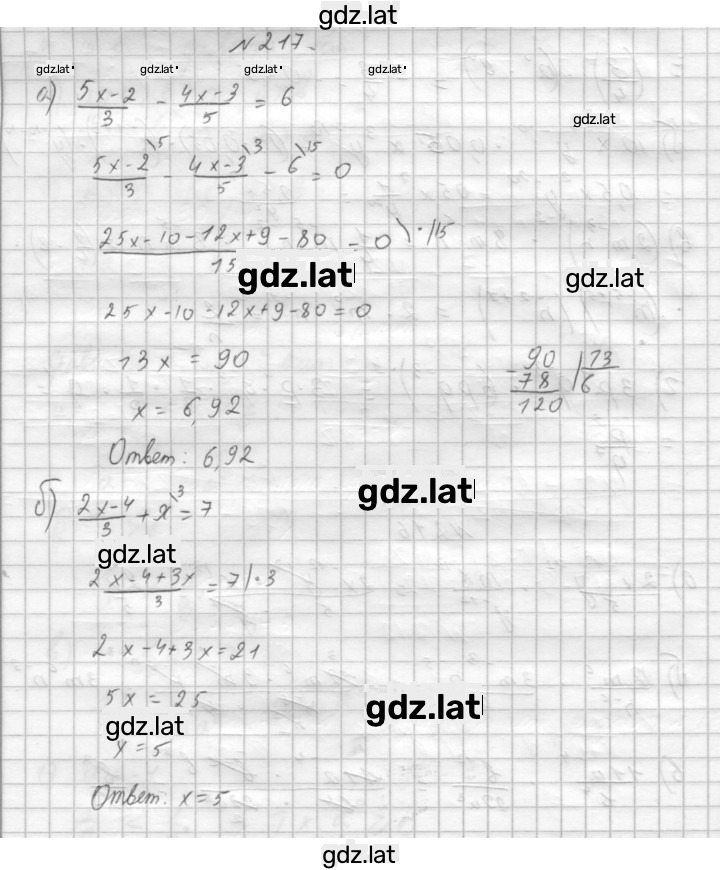 gdz.lat
№217.
gdz.lat gdz.lat gdz.lat gdz.lat
а) (5x-2)/3 - (4x-3)/5 = 6
gdz.lat
(5x-2)/3 \5 - (4x-3)/5 \3 - 6 \15 = 0
(25x-10-12x+9-80)/15 = 0 \·/15
gdz.lat gdz.lat
25x-10-12x+9-80=0
13x = 90
90 | 13
- 78 | 6
120
x = 6,92
Ответ: 6,92
gdz.lat
б) (2x-4)/3 + x \3 = 7
gdz.lat
(2x-4+3x)/3 = 7 |·3
2x-4+3x=21
5x=25
gdz.lat
gdz.lat
x=5
Ответ: x=5
gdz.lat